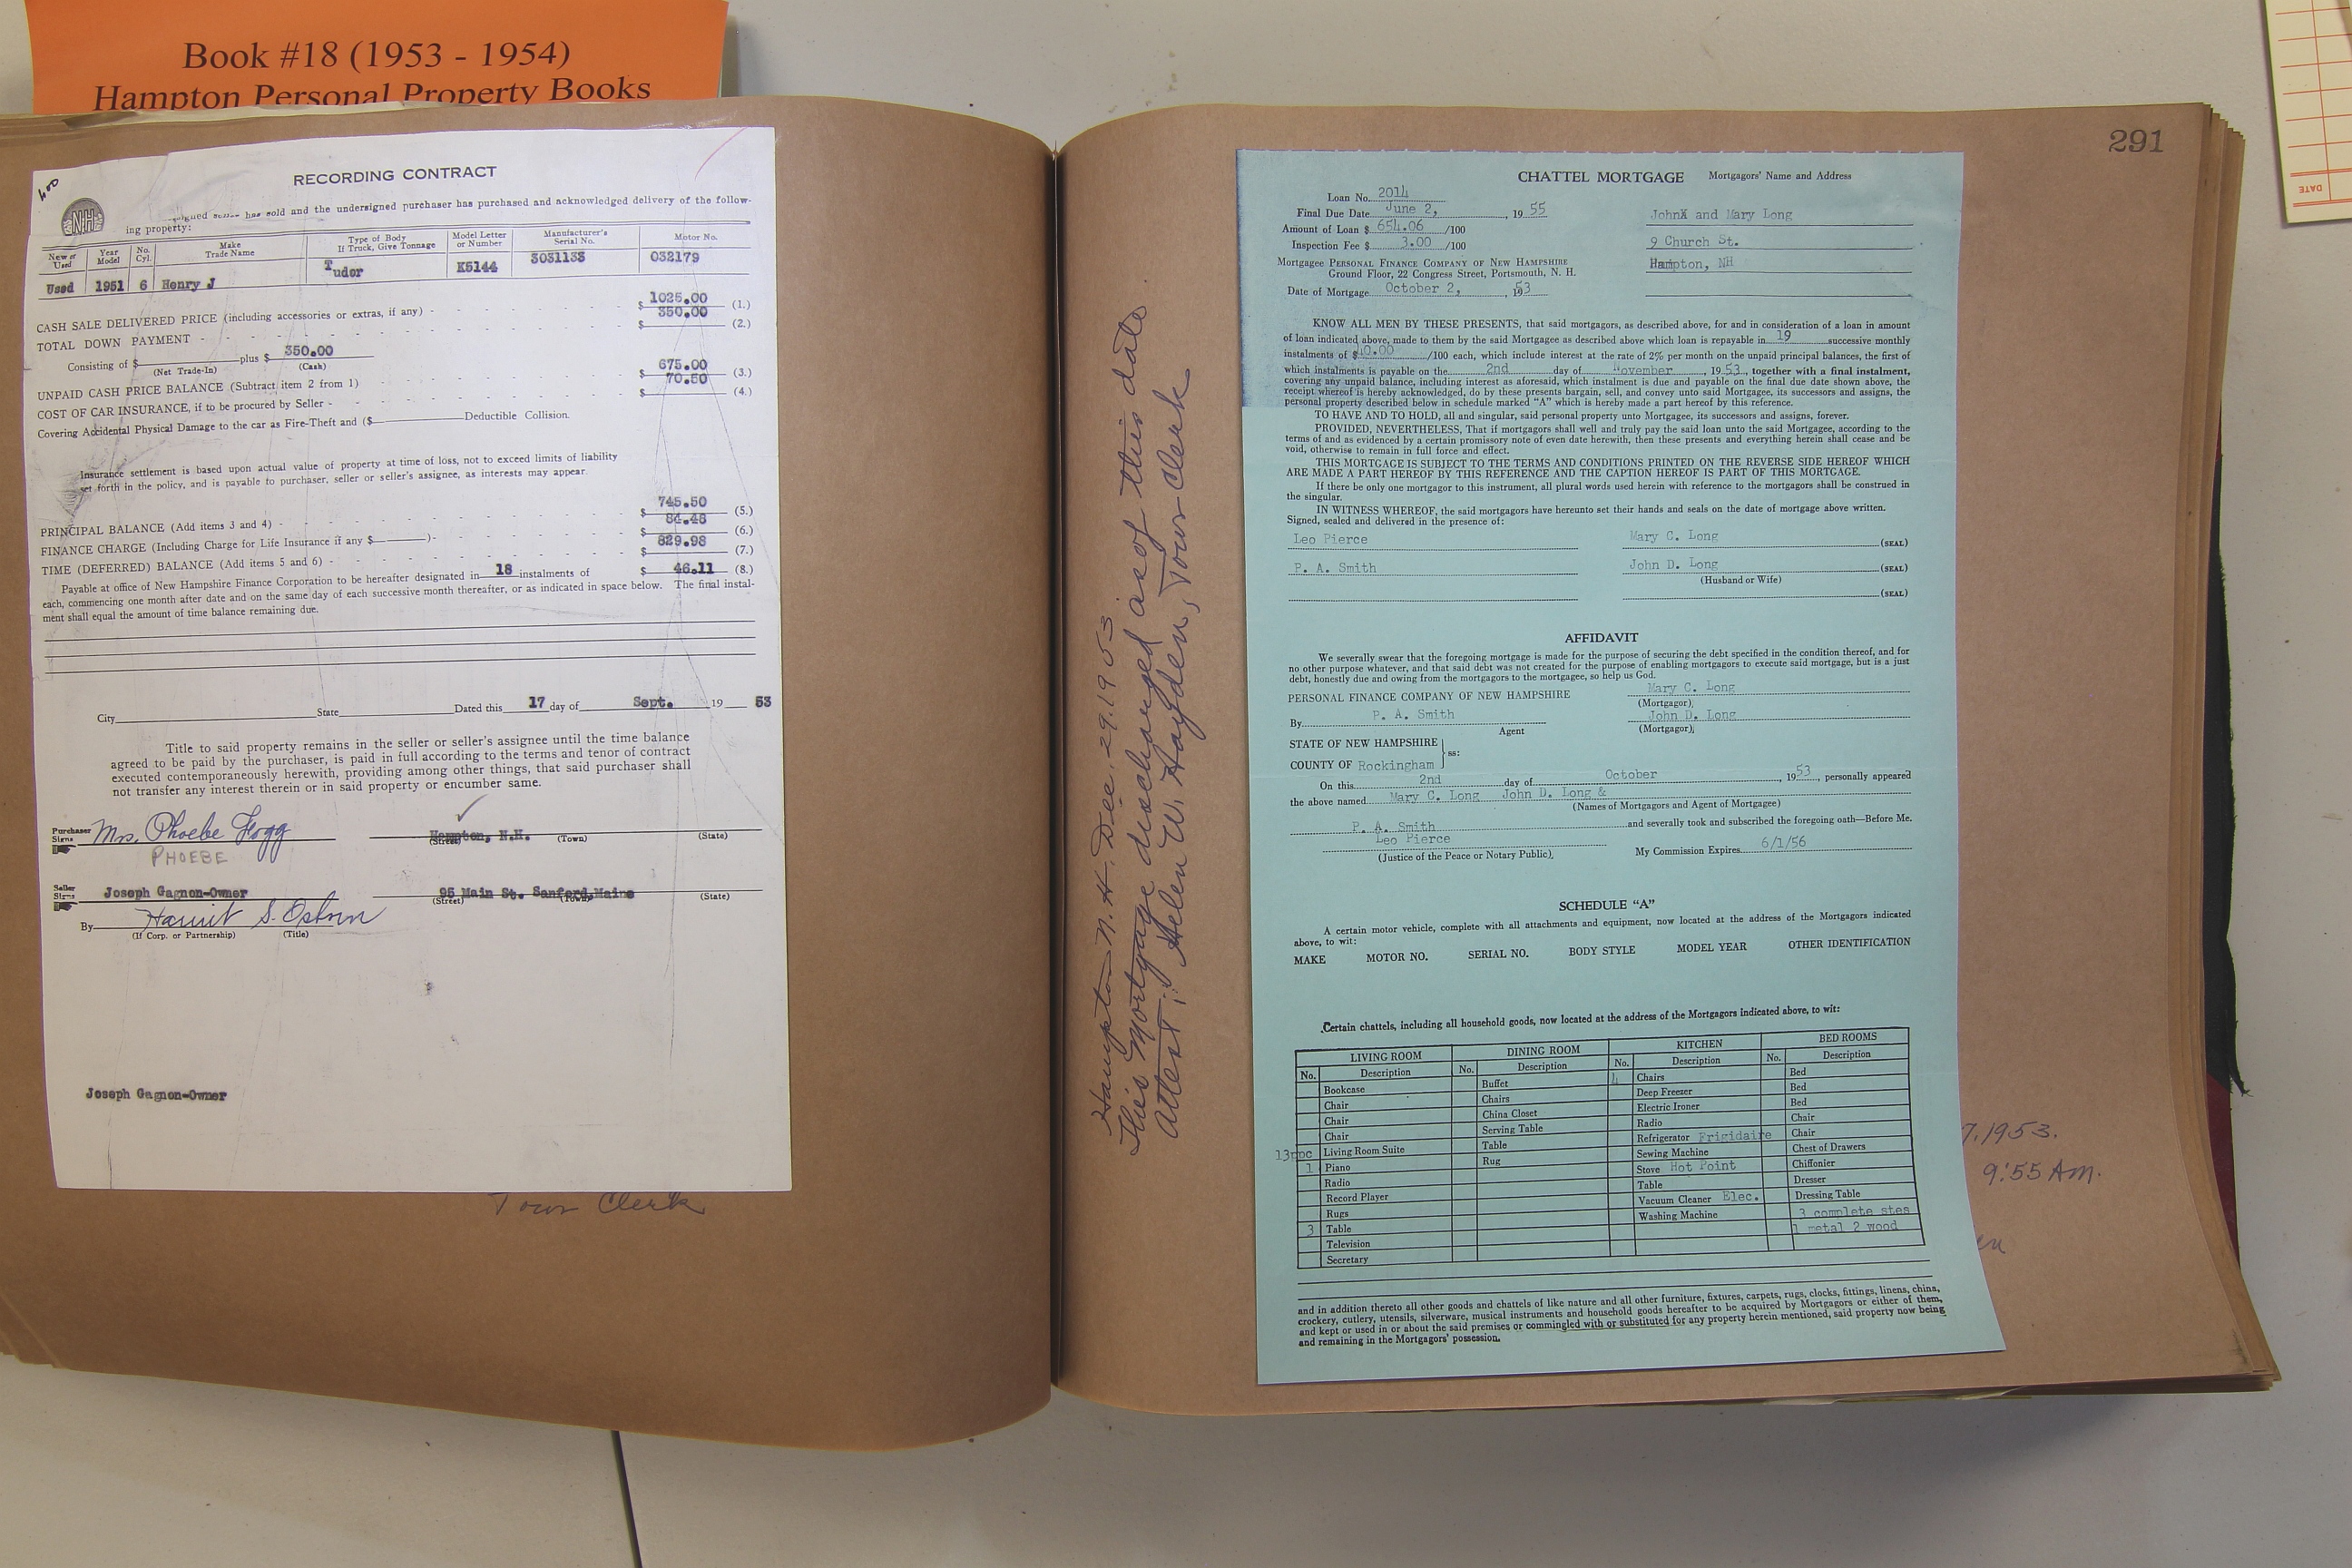 Book #18 (1953 - 1954)
Hampton Personal Property Books
400
RECORDING CONTRACT
NH
has sold and the undersigned purchaser has purchased and acknowledged delivery of the follow-
ing property:
New or Used Year Model No. Cyl. Make Trade Name Type of Body If Truck, Give Tonnage Model Letter or Number Manufacturer's Serial No. Motor No.
Used 1951 6 Henry J Tudor K5144 3031133 032179
CASH SALE DELIVERED PRICE (including accessories or extras, if any) - $ 1025.00 (1.)
TOTAL DOWN PAYMENT - $ 350.00 (2.)
Consisting of $ plus $ 350.00
(Net Trade-In) (Cash)
UNPAID CASH PRICE BALANCE (Subtract item 2 from 1) $ 675.00 (3.)
COST OF CAR INSURANCE, if to be procured by Seller - $ 70.50 (4.)
Covering Accidental Physical Damage to the car as Fire-Theft and ($ Deductible Collision.
Insurance settlement is based upon actual value of property at time of loss, not to exceed limits of liability
set forth in the policy, and is payable to purchaser, seller or seller's assignee, as interests may appear.
PRINCIPAL BALANCE (Add items 3 and 4) - $ 745.50 (5.)
FINANCE CHARGE (Including Charge for Life Insurance if any $ )- $ 84.48 (6.)
TIME (DEFERRED) BALANCE (Add items 5 and 6) - $ 829.98 (7.)
Payable at office of New Hampshire Finance Corporation to be hereafter designated in 18 instalments of $ 46.11 (8.)
each, commencing one month after date and on the same day of each successive month thereafter, or as indicated in space below. The final instal-
ment shall equal the amount of time balance remaining due.
City State Dated this 17 day of Sept. 19 53
Title to said property remains in the seller or seller's assignee until the time balance
agreed to be paid by the purchaser, is paid in full according to the terms and tenor of contract
executed contemporaneously herewith, providing among other things, that said purchaser shall
not transfer any interest therein or in said property or encumber same.
Purchaser Signs Mrs. Phoebe Fogg Hampton, N.H.
(Street) (Town) (State)
PHOEBE
Seller Signs Joseph Gagnon-Owner 95 Main St. Sanford, Maine
(Street) (Town) (State)
By Harriet S. Osborn
(If Corp. or Partnership) (Title)
Joseph Gagnon-Owner
Town Clerk
Hampton N.H. Dec. 29, 1953
This Mortgage discharged as of this date.
Attest; Helen W. Hayden, Town Clerk
291
CHATTEL MORTGAGE Mortgagors' Name and Address
Loan No. 2014
Final Due Date June 2, , 19 55
Amount of Loan $ 654.06 /100
Inspection Fee $ 3.00 /100
Mortgagee PERSONAL FINANCE COMPANY OF NEW HAMPSHIRE
Ground Floor, 22 Congress Street, Portsmouth, N. H.
Date of Mortgage October 2, , 1953
JohnX and Mary Long
9 Church St.
Hampton, NH
KNOW ALL MEN BY THESE PRESENTS, that said mortgagors, as described above, for and in consideration of a loan in amount
of loan indicated above, made to them by the said Mortgagee as described above which loan is repayable in 19 successive monthly
instalments of $40.00 /100 each, which include interest at the rate of 2% per month on the unpaid principal balances, the first of
which instalments is payable on the 2nd day of November , 19 53, together with a final instalment,
covering any unpaid balance, including interest as aforesaid, which instalment is due and payable on the final due date shown above, the
receipt whereof is hereby acknowledged, do by these presents bargain, sell, and convey unto said Mortgagee, its successors and assigns, the
personal property described below in schedule marked "A" which is hereby made a part hereof by this reference.
TO HAVE AND TO HOLD, all and singular, said personal property unto Mortgagee, its successors and assigns, forever.
PROVIDED, NEVERTHELESS, That if mortgagors shall well and truly pay the said loan unto the said Mortgagee, according to the
terms of and as evidenced by a certain promissory note of even date herewith, then these presents and everything herein shall cease and be
void, otherwise to remain in full force and effect.
THIS MORTGAGE IS SUBJECT TO THE TERMS AND CONDITIONS PRINTED ON THE REVERSE SIDE HEREOF WHICH
ARE MADE A PART HEREOF BY THIS REFERENCE AND THE CAPTION HEREOF IS PART OF THIS MORTGAGE.
If there be only one mortgagor to this instrument, all plural words used herein with reference to the mortgagors shall be construed in
the singular.
IN WITNESS WHEREOF, the said mortgagors have hereunto set their hands and seals on the date of mortgage above written.
Signed, sealed and delivered in the presence of:
Leo Pierce Mary C. Long (SEAL)
P. A. Smith John D. Long (SEAL)
(Husband or Wife)
(SEAL)
AFFIDAVIT
We severally swear that the foregoing mortgage is made for the purpose of securing the debt specified in the condition thereof, and for
no other purpose whatever, and that said debt was not created for the purpose of enabling mortgagors to execute said mortgage, but is a just
debt, honestly due and owing from the mortgagors to the mortgagee, so help us God.
PERSONAL FINANCE COMPANY OF NEW HAMPSHIRE Mary C. Long
(Mortgagor)
By P. A. Smith John D. Long
Agent (Mortgagor)
STATE OF NEW HAMPSHIRE
ss:
COUNTY OF Rockingham
On this 2nd day of October , 1953, personally appeared
the above named Mary C. Long John D. Long &
(Names of Mortgagors and Agent of Mortgagee)
P. A. Smith and severally took and subscribed the foregoing oath—Before Me.
Leo Pierce My Commission Expires 6/1/56
(Justice of the Peace or Notary Public)
SCHEDULE "A"
A certain motor vehicle, complete with all attachments and equipment, now located at the address of the Mortgagors indicated
above, to wit:
MAKE MOTOR NO. SERIAL NO. BODY STYLE MODEL YEAR OTHER IDENTIFICATION
Certain chattels, including all household goods, now located at the address of the Mortgagors indicated above, to wit:
LIVING ROOM DINING ROOM KITCHEN BED ROOMS
No. Description No. Description No. Description No. Description
Bookcase Buffet 4 Chairs Bed
Chair Chairs Deep Freezer Bed
Chair China Closet Electric Ironer Bed
Chair Serving Table Radio Chair
13pc Living Room Suite Table Refrigerator Frigidaire Chair
1 Piano Rug Sewing Machine Chest of Drawers
Radio Stove Hot Point Chiffonier
Record Player Table Dresser
Rugs Vacuum Cleaner Elec. Dressing Table
3 Table Washing Machine 3 complete stes
Television 1 metal 2 wood
Secretary
and in addition thereto all other goods and chattels of like nature and all other furniture, fixtures, carpets, rugs, clocks, fittings, linens, china,
crockery, cutlery, utensils, silverware, musical instruments and household goods hereafter to be acquired by Mortgagors or either of them,
and kept or used in or about the said premises or commingled with or substituted for any property herein mentioned, said property now being
and remaining in the Mortgagors' possession.
7, 1953.
9:55 AM.
en
DATE